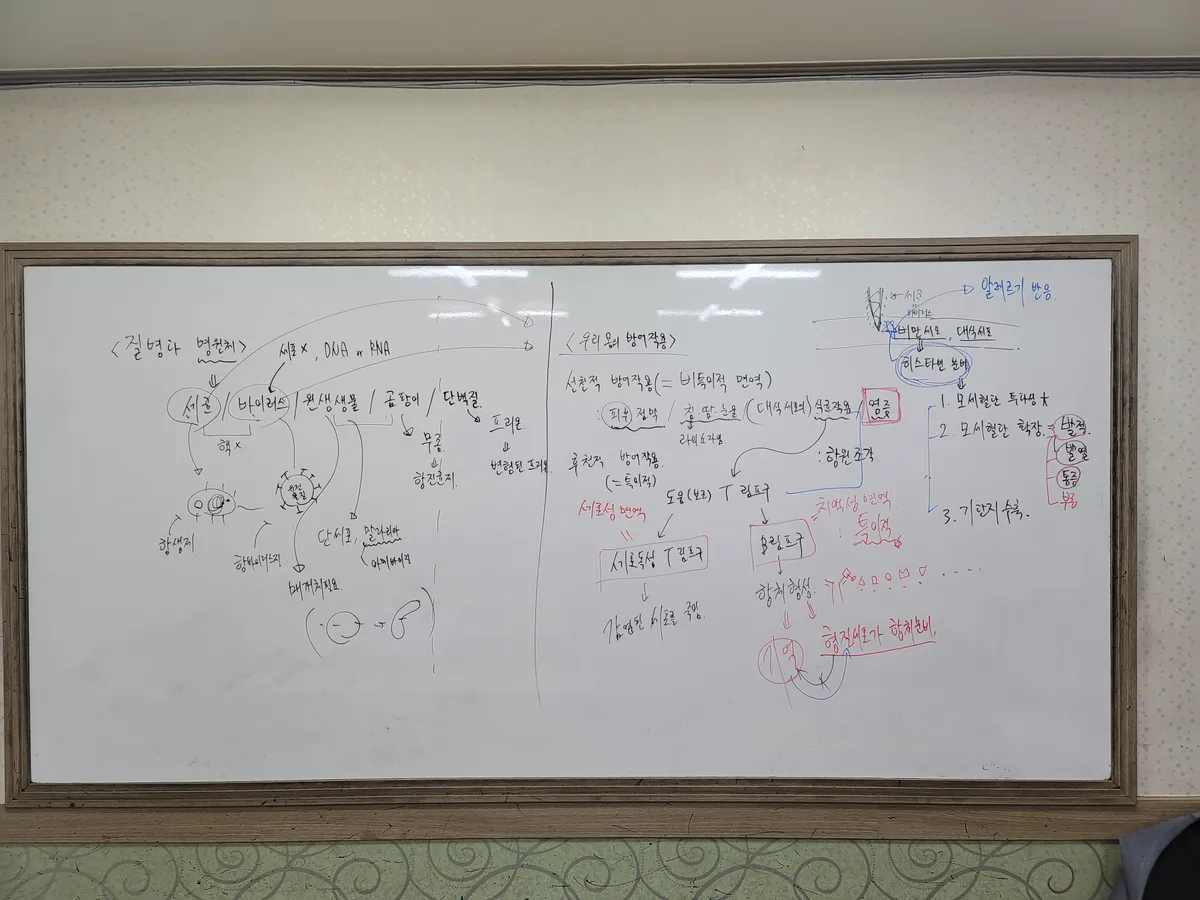 <질병과 병원체>
세포×, DNA or RNA
세균 / 바이러스 / 원생생물 / 곰팡이 / 단백질
핵×
유전물질
항생제
항바이러스제
매개체필요
단세포, 말라리아
무좀
항진균제
프리온
변형된 프리온
<우리 몸의 방어작용>
선천적 방어작용 (= 비특이적 면역)
: 피부 점막 / 침·땀·눈물 (대식세포의) 식균작용
염증
라이소자임
: 항원조각
후천적 방어작용
(= 특이적)
도움(보조) T 림프구
세포성 면역
세포독성 T림프구
감염된 세포를 죽임.
B림프구
= 체액성면역
: 특이적
항체 형성
기억
형질세포가 항체분비.
알레르기 반응.
세균
바이러스
비만세포, 대식세포
히스타민 분비
1. 모세혈관 투과성↑
2. 모세혈관 확장.
발적
발열
통증
부종
3. 기관지수축.